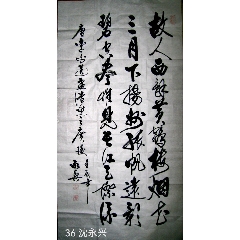 故人西辞黄鹤楼烟花
三月下扬州孤帆远影
碧空尽唯见长江天际流
唐李白送孟浩然之广陵
36 沈永兴